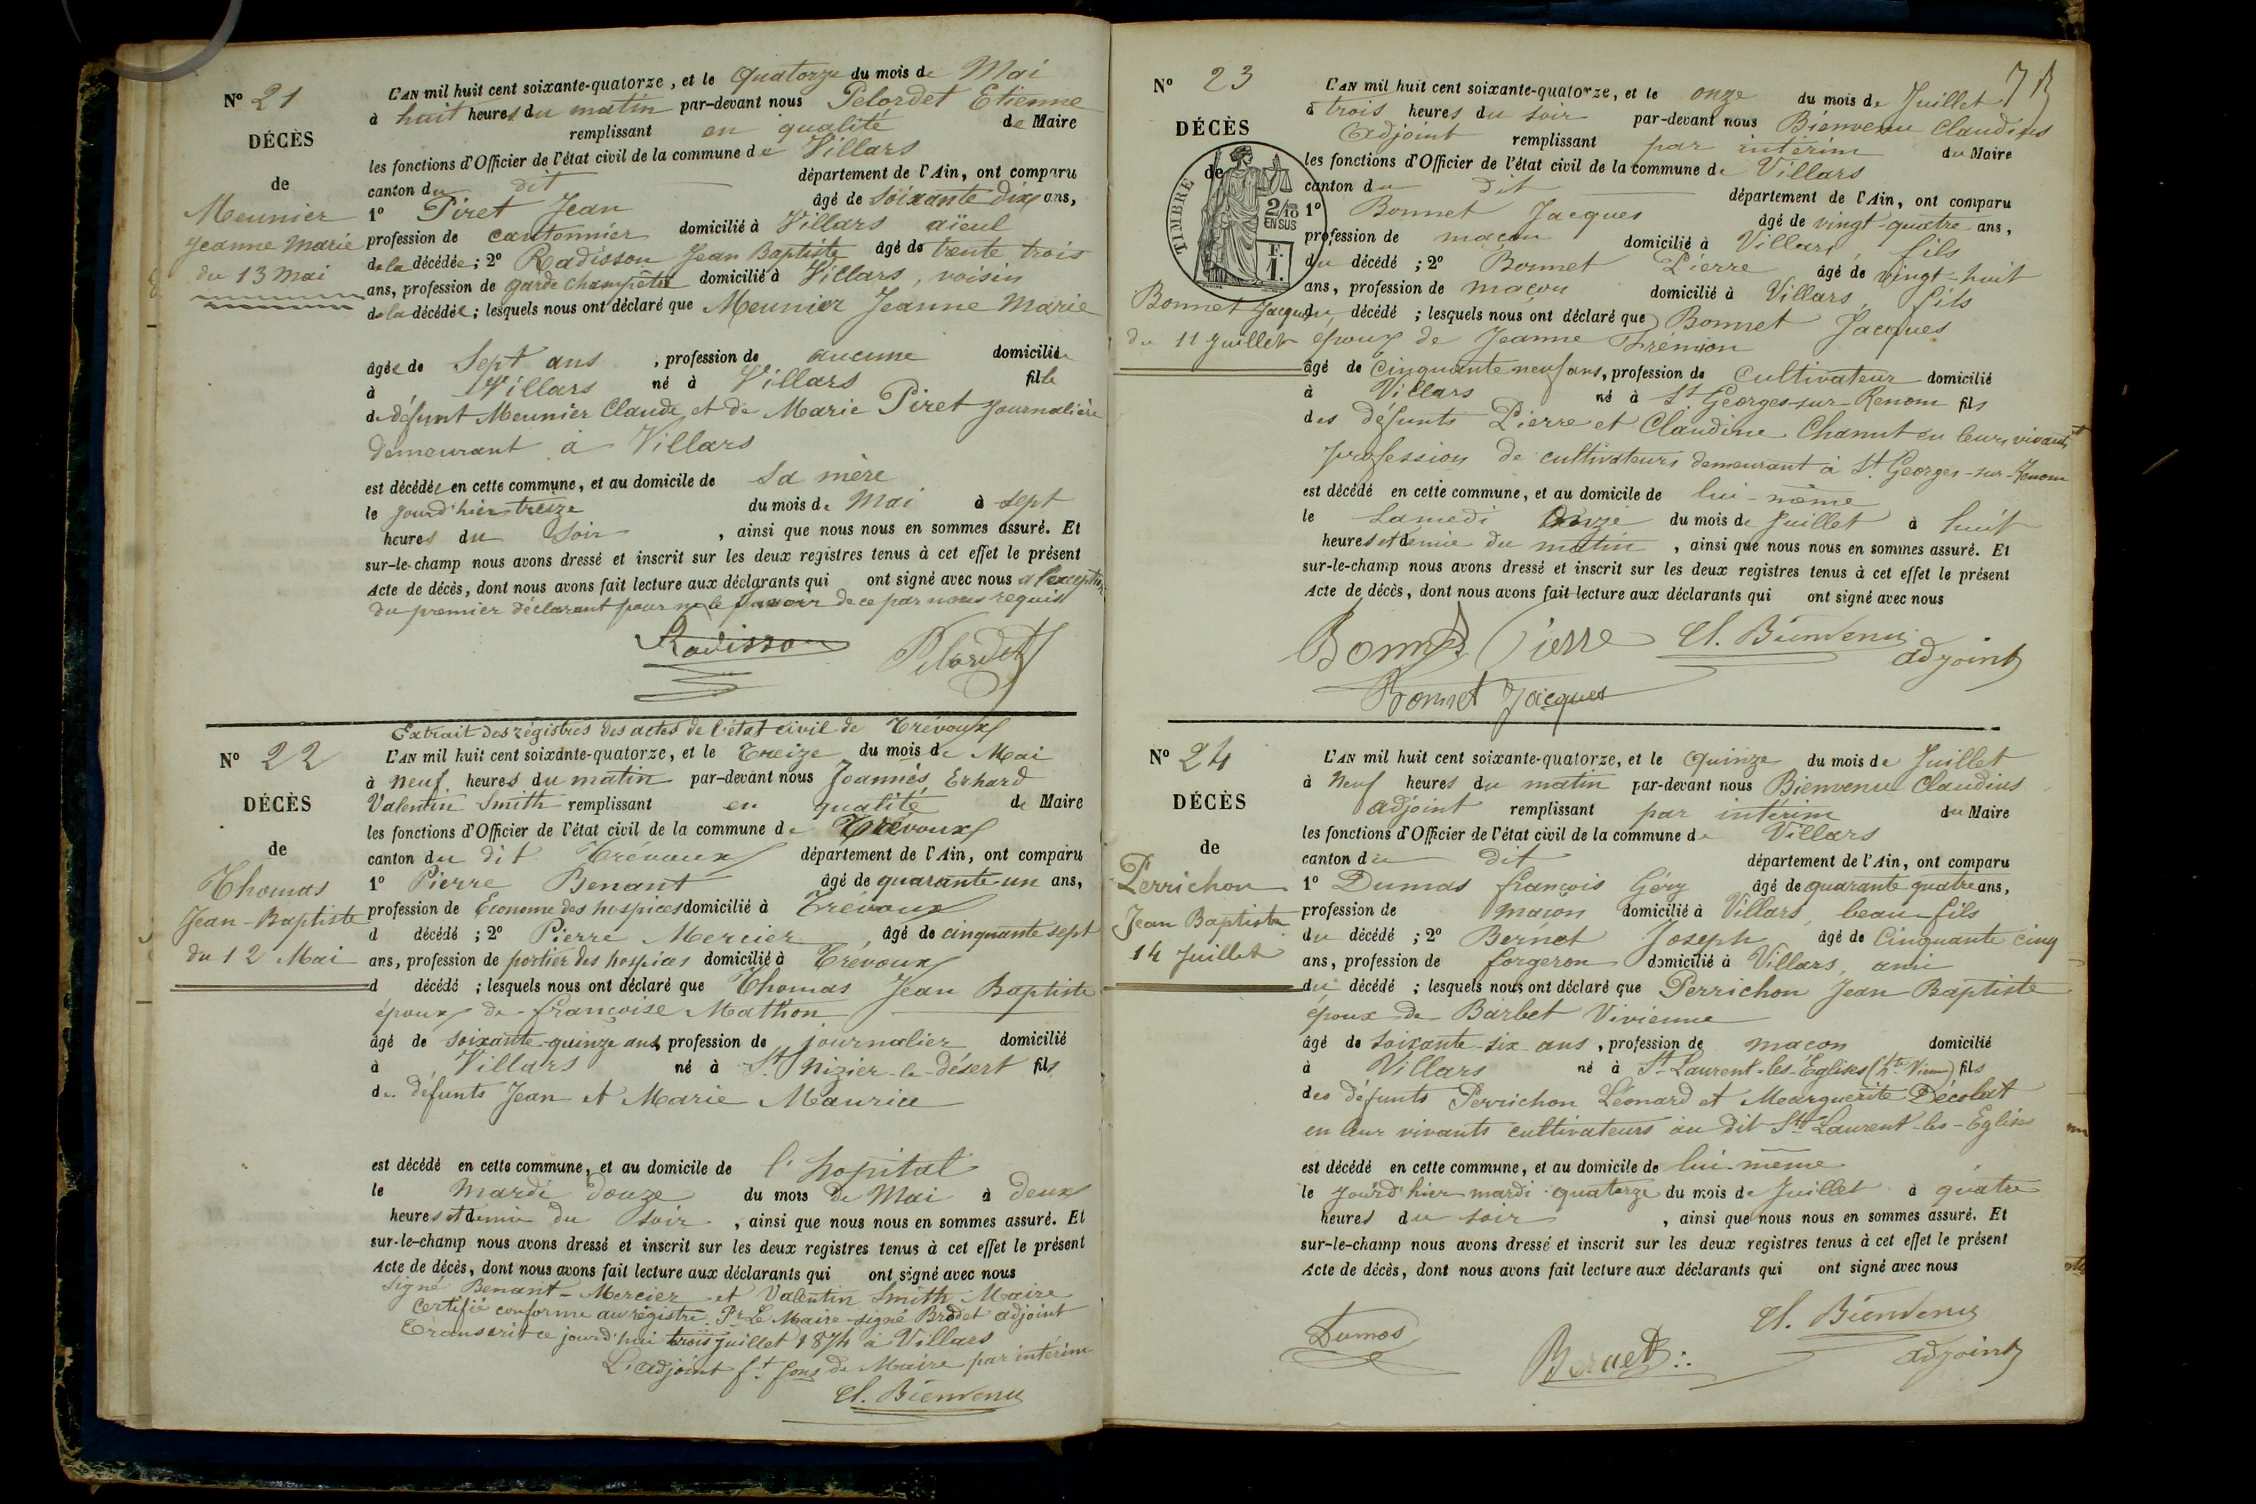 N° 21
DÉCÈS
de
Meunier
Jeanne Marie
du 13 Mai
L'AN mil huit cent soixante-quatorze, et le quatorze du mois de Mai
à huit heures du matin par-devant nous Pelordet Etienne
remplissant en qualité de Maire
les fonctions d'Officier de l'état civil de la commune de Villars
canton du dit département de l'Ain, ont comparu
1° Piret Jean âgé de soixante dix ans,
profession de cantonnier domicilié à Villars aïeul
de la décédée; 2° Radisson Jean Baptiste âgé de trente trois
ans, profession de garde champêtre domicilié à Villars, voisin
de la décédée; lesquels nous ont déclaré que Meunier Jeanne Marie
âgée de Sept ans, profession de aucune domiciliée
à Villars né à Villars fille
de défunt Meunier Claude et de Marie Piret journalière
demeurant à Villars
est décédée en cette commune, et au domicile de sa mère
le jourd'hier treize du mois de Mai à sept
heures du soir, ainsi que nous nous en sommes assuré. Et
sur-le-champ nous avons dressé et inscrit sur les deux registres tenus à cet effet le présent
Acte de décès, dont nous avons fait lecture aux déclarants qui ont signé avec nous a l'exception
du premier déclarant pour ne le savoir de ce par nous requis
Radisson Pelordet
N° 22
DÉCÈS
de
Thomas
Jean-Baptiste
du 12 Mai
Extrait des régistres des actes de l'état civil de Trévoux
L'AN mil huit cent soixante-quatorze, et le Treize du mois de Mai
à neuf heures du matin par-devant nous Joannès Erhard
Valentin Smith remplissant en qualité de Maire
les fonctions d'Officier de l'état civil de la commune de Trévoux
canton du dit Trévoux département de l'Ain, ont comparu
1° Pierre Benant âgé de quarante-un ans,
profession de Econome des hospices domicilié à Trévoux
d décédé; 2° Pierre Mercier, âgé de cinquante sept
ans, profession de portier des hospices domicilié à Trévoux
d décédé; lesquels nous ont déclaré que Thomas Jean Baptiste
époux de françoise Mathon
âgé de soixante-quinze ans, profession de journalier domicilié
à Villars né à St Nizier-le-désert fils
de défunts Jean et Marie Maurice
est décédé en cette commune, et au domicile de l'hopital
le mardi douze du mois de Mai à deux
heures et demie du soir, ainsi que nous nous en sommes assuré. Et
sur-le-champ nous avons dressé et inscrit sur les deux registres tenus à cet effet le présent
Acte de décès, dont nous avons fait lecture aux déclarants qui ont signé avec nous
signé Benant-Mercier et Valentin Smith Maire
Certifié conforme au régistre. Pr Le Maire signé Brodet adjoint
Transcrit ce jourd'hui trois juillet 1874 à Villars
L'adjoint ft fons de Maire par intérim
Cl. Bienvenu
N° 23
DÉCÈS
de
TIMBRE
2/10
EN SUS
F.
1.
Bonnet Jacques
du 11 Juillet
L'AN mil huit cent soixante-quatorze, et le onze du mois de Juillet
à trois heures du soir par-devant nous Bienvenu Claudius
adjoint remplissant par intérim du Maire
les fonctions d'Officier de l'état civil de la commune de Villars
canton du dit département de l'Ain, ont comparu
1° Bonnet Jacques âgé de vingt-quatre ans,
profession de maçon domicilié à Villars, fils
du décédé; 2° Bonnet Pierre âgé de vingt-huit
ans, profession de maçon domicilié à Villars, fils
du décédé; lesquels nous ont déclaré que Bonnet Jacques
époux de Jeanne Frémion
âgé de Cinquante neuf ans, profession de cultivateur domicilié
à Villars né à St Georges-sur-Renom fils
des défunts Pierre et Claudine Chanut en leurs vivants
profession de cultivateurs demeurant à St Georges-sur-Renom
est décédé en cette commune, et au domicile de lui-même
le samedi onze du mois de juillet à huit
heures et demie du matin, ainsi que nous nous en sommes assuré. Et
sur-le-champ nous avons dressé et inscrit sur les deux registres tenus à cet effet le présent
Acte de décès, dont nous avons fait lecture aux déclarants qui ont signé avec nous
Bonnet Pierre Cl. Bienvenu
adjoint
Bonnet Jacques
N° 24
DÉCÈS
de
Perrichon
Jean Baptiste
14 Juillet
L'AN mil huit cent soixante-quatorze, et le quinze du mois de Juillet
à neuf heures du matin par-devant nous Bienvenu Claudius
adjoint remplissant par intérim du Maire
les fonctions d'Officier de l'état civil de la commune de Villars
canton du dit département de l'Ain, ont comparu
1° Dumas françois Géry âgé de quarante quatre ans,
profession de maçon domicilié à Villars, beau-fils
du décédé; 2° Bernet Joseph âgé de Cinquante cinq
ans, profession de forgeron domicilié à Villars, ami
du décédé; lesquels nous ont déclaré que Perrichon Jean Baptiste
époux de Barbet Vivienne
âgé de soixante-six ans, profession de maçon domicilié
à Villars né à St Laurent-les-Églises (Hte Vienne) fils
des défunts Perrichon Léonard et Marguerite Décolat
en leur vivants cultivateurs au dit St Laurent-les-Eglises
est décédé en cette commune, et au domicile de lui-même
le jourd'hier mardi quatorze du mois de Juillet à quatre
heures du soir, ainsi que nous nous en sommes assuré. Et
sur-le-champ nous avons dressé et inscrit sur les deux registres tenus à cet effet le présent
Acte de décès, dont nous avons fait lecture aux déclarants qui ont signé avec nous
Dumas Bernet Cl. Bienvenu
adjoint